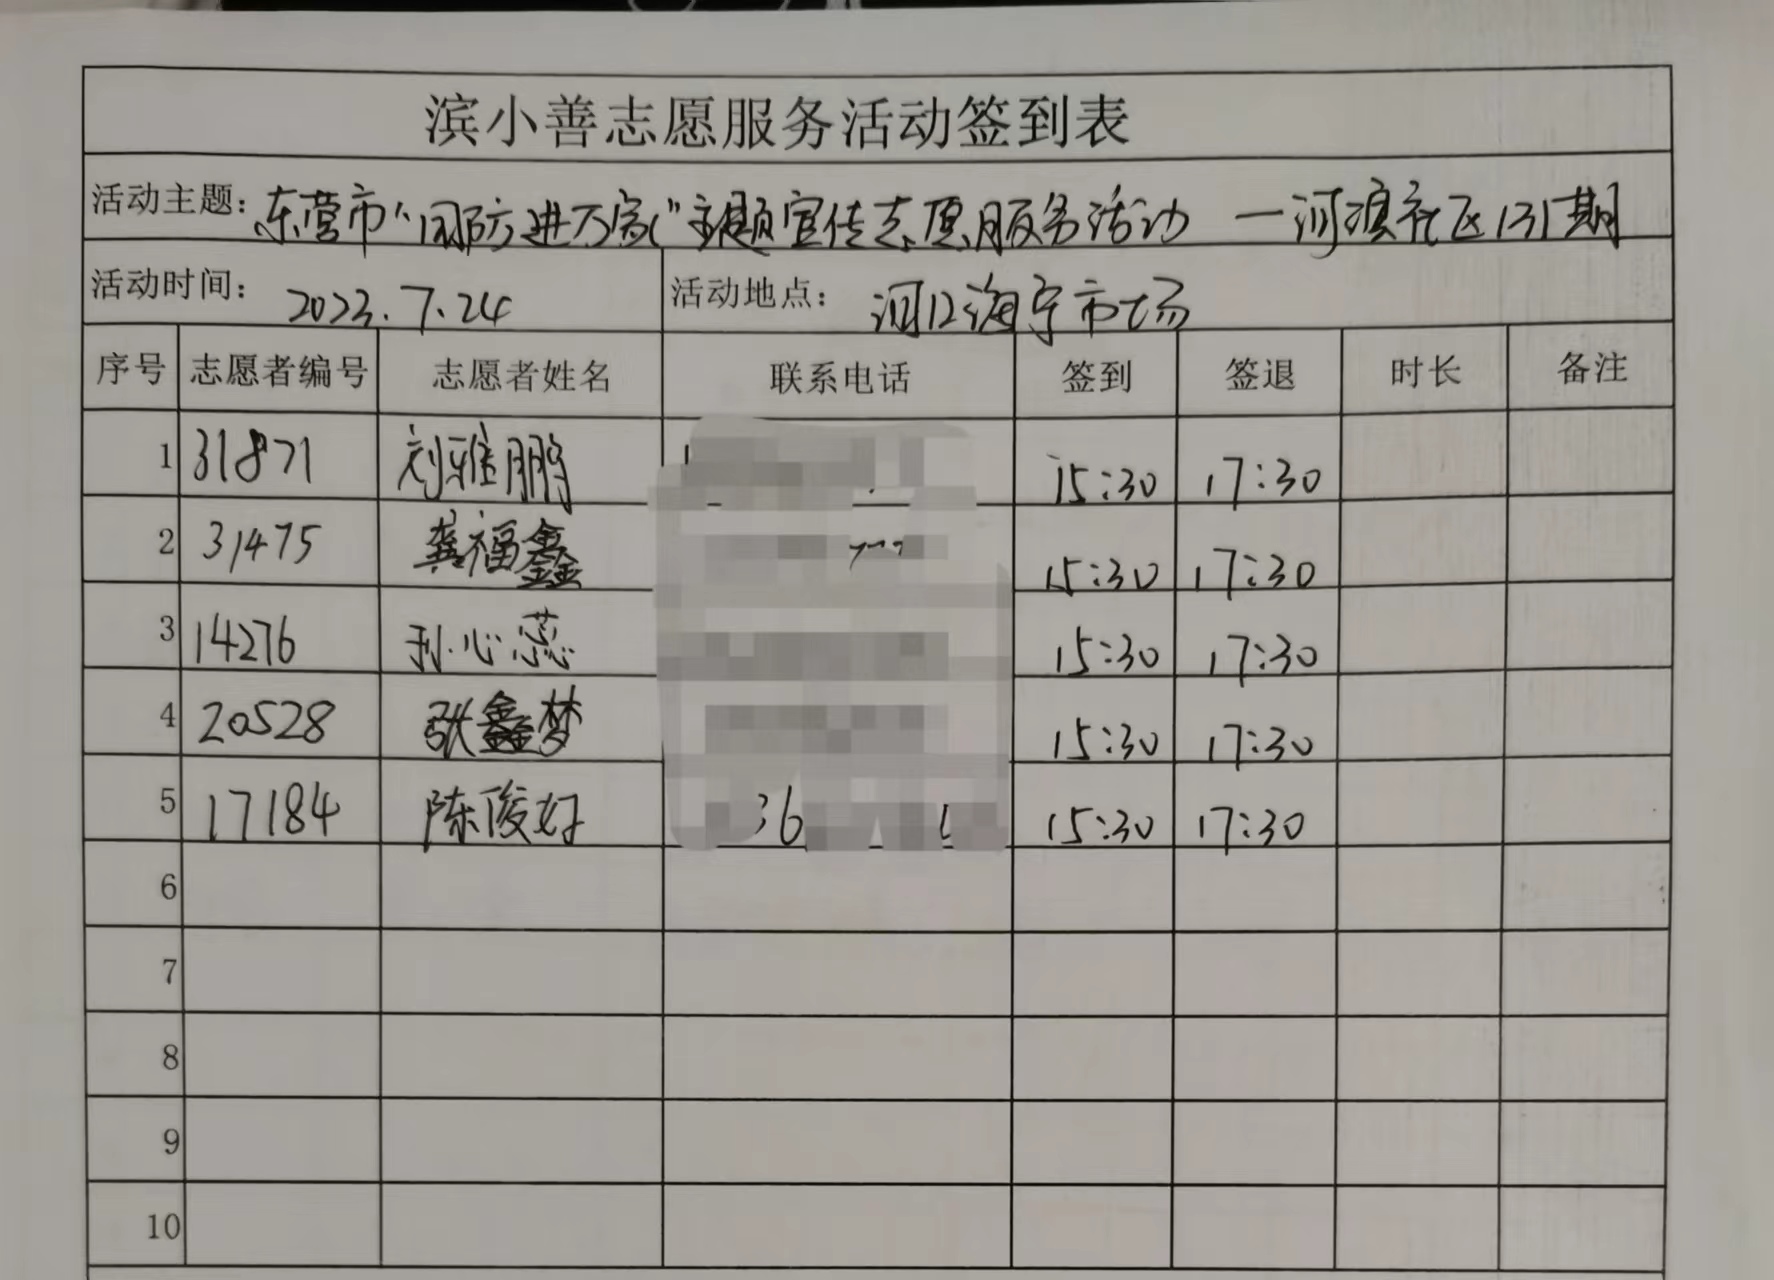 滨小善志愿服务活动签到表
活动主题：东营市“国防进万家”主题宣传志愿服务活动 一河滨社区131期
活动时间：2023.7.24 活动地点：河口海宁市场
序号 志愿者编号 志愿者姓名 联系电话 签到 签退 时长 备注
1 31871 刘雅鹏 15:30 17:30
2 31475 龚福鑫 15:30 17:30
3 14276 孙心蕊 15:30 17:30
4 20528 张鑫梦 15:30 17:30
5 17184 陈俊好 36 15:30 17:30
6
7
8
9
10